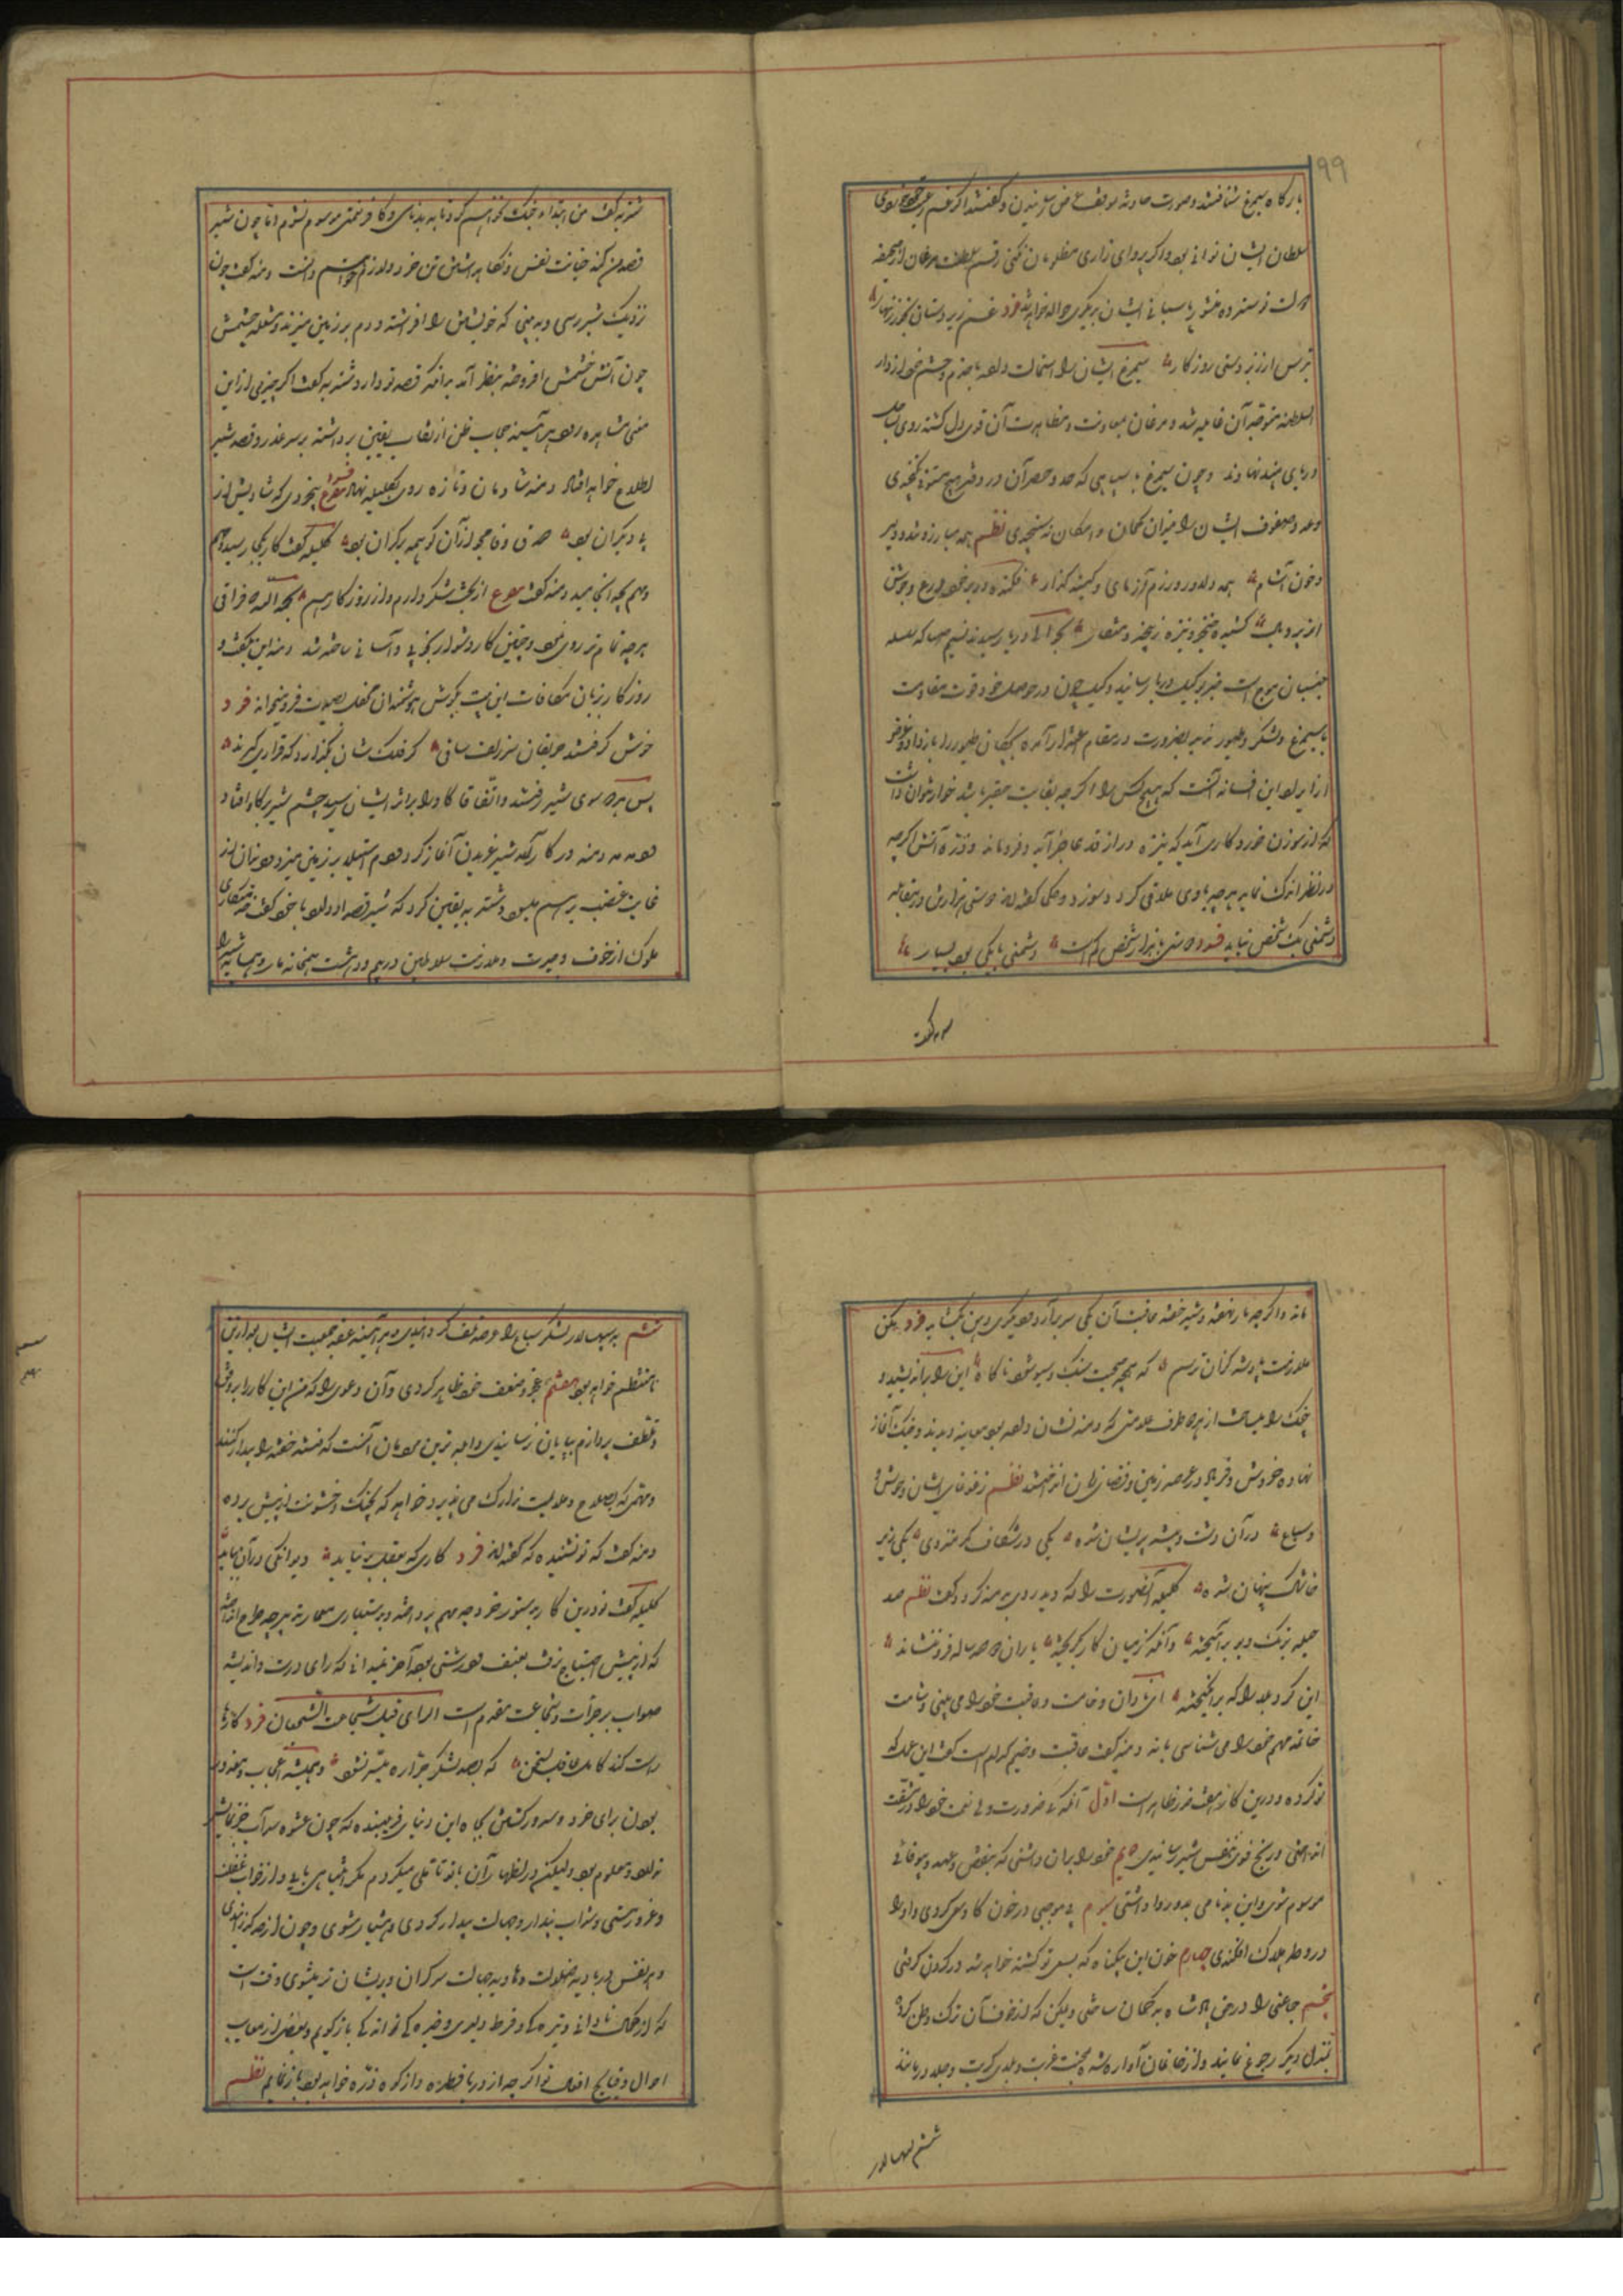 ۹۹
بارگاه سیمرغ شتافتند و صورت حادثه بموقف عرض رسانیدن و گفتند اگر غم رعیت خوری
سلطان ایشان توانی بود و اگر پروای زاری مظلومان نکنی رقم سلطنت مرغان از صحیفه
فرد غم زیردستان بخور زینهار
بترس از زبردستی روزگار سیمرغ ایشان را استمالت داده با خدم و حشم خود از دار
السلطنه متوجه آن غایله شد و مرغان بمعاونت و مظاهرت آن قوی دل گشته روی بساحل
دریای هند نهادند و چون سیمرغ با سپاهی که حد و حصر آن در دفتر هیچ مستوفی نگنجدی
و عدد صفوف ایشان را میزان گمان و امکان نسنجیدی نظم همه مبارز و تند و دلیر
و خون آشام همه دلاور و رزم آزمای و کینه گذار فکنده در بر خود درع و جوشن
از پر و بال کشیده خنجر و نیزه ز پنجه و منقار بحوالی دریا رسیدند نسیم صبا که سلسله
جنبان موج است خبر بوکیل دریا رسانید وکیل چون در حوصله خود قوت مقاومت
با سیمرغ و لشکر و طیور ندید بضرورت در مقام اعتذار آمده بچگان طیور را باز داد و غرض
از ایراد این افسانه آنست که هیچ کس را اگرچه بغایت حقیر باشد خوار نتوان داشت
که از سوزن خرد کاری آید که نیزه دراز قد عاجز آید و فروماند و ذره آتش اگرچه
در نظر اندک نماید هرچه با وی ملاقی گردد بسوزد و حکما گفته اند دوستی هزار تن در مقابله
دشمنی یک شخص نیاید فرد دوستی با هزار شخص کم است دشمنی با یکی بود بسیار
شنزبه گفت
شنزبه گفت من ابتدا بجنگ نخواهم کرد تا به بدنامی و کافر نعمتی موسوم نشوم اما چون شیر
قصد من کند صیانت نفس و نگاه داشتن تن خود را لازم خواهم دانست دمنه گفت چون
نزدیک شیر رسی و به بینی که خویشتن را افراشته و دم بر زمین میزند و شعله چشمش
چون آتش خشمش افروخته بنظر آید بدانکه قصد تو دارد شنزبه گفت اگر چیزی از این
معنی مشاهده رود هر آیینه حجاب ظن از نقاب یقین برداشته بر سر غدر و قصد شیر
اطلاع خواهد افتاد دمنه شادمان و تازه روی بکلیله نهاد
با دیگران بود حرف وفا مجو از آن کو همه دیگران بود کلیله گفت کار بکجا رسید
و مهم بچه انجامید دمنه گفت مصرع از بخت شکر دارم و از روزگار هم بحمد الله فراقی
هرچه تمام تر روی نمود و چنین کار دشوار بخوبی و آسانی ساخته شد دمنه این بگفت و
روزگار بزبان مکافات این بیت بگوش هوشمندان محفل بصیرت فرو میخواند فرد
خوش گرفتند حریفان سر زلف ساقی گر فلک شان بگذارد که قراری گیرند
پس هر دو سوی شیر رفتند و اتفاقا گاو را بر اثر ایشان رسید چشم شیر بر گاو افتاد
دمدمه دمنه در کار آمد شیر غریدن آغاز کرد و دم استیلا بر زمین میزد و دندان از
غایت غضب بر هم میسود شنزبه یقین کرد که شیر قصد او دارد با خود گفت خدمتکاری
ملوک از خوف و حیرت و ملازمت سلاطین در بیم و دهشت همخانه مار و همسایه شیر
ماند و اگرچه مار نهفته و شیر خفته عاقبت آن یکی سر برآرد و دیگری دهن بگشاید فرد مکن
ملازمت پادشه کزان ترسم که همچو صحبت سنگ و سبو شود ناگاه این را می اندیشید و
جنگ را میساخت از هر دو طرف علامتی که دمنه نشان داده بود معاینه دیدند و جنگ آغاز
نهاده خروش و فریاد در عرصه زمین و فضای زمان انداختند نظم ز غوغای ایشان وحوش
و سباع در آن دشت و بیشه پریشان شده یکی در شکاف کمر متزوی یکی زیر
خاشاک پنهان شده کلیله آن صورت را که دید روی بدمنه کرد و گفت نظم صد
حیله برنگ دیو برآمیخته وآنگه ز میان کار بگریخته باران دو صد ساله فرو ننشاند
این گرد بلا را که برانگیخته ای نادان وخامت و عاقبت خود را می بینی و شامت
خاتمه مهم خود را می شناسی یا نه دمنه گفت عاقبت وخیم کدام است گفت این عمل که
تو کرده و در این کار هفت ضرر ظاهر است اول آنکه بی ضرورت ولی نعمت خود را در مشقت
انداختی و رنج قوی بنفس شیر رسانیدی دوم مخدوم را بران داشتی که بنقض عهد و بیوفائی
موسوم شد و این بدنامی بدو روا داشتی سیوم بی موجبی در خون گاو سعی کردی و او را
در ورطه هلاک افکندی چهارم خون این بیگناه که بسعی تو کشته خواهد شد در گردن گرفتی
پنجم جماعتی را در حق پادشاه بدگمان ساختی و ممکن که از خوف آن ترک وطن کرده
بمنزل دیگر رجوع نمایند و از خانمان آواره شده بمحنت غربت و بلای کربت و جلا درمانند
ششم سپهسالار
ششم سپهسالار لشکر سباع را عرضه تلف گردانیدی و هر آینه عقد جمعیت ایشان بعد از این
نامنتظم خواهد بود هفتم عجز و ضعف خود ظاهر کردی و آن دعوی را که من این کار را برفق
و تلطف بپردازم بپایان نرسانیدی و ابله ترین مردمان آنست که فتنه خفته را بیدار کنند
و مهمی که بصلاح و ملایمت تدارک می پذیرد خواهد که بجنگ و خشونت از پیش برد
دمنه گفت که تو نشنیده که گفته اند فرد کاری که بعقل بر نیاید دیوانگی در آن بباید
کلیله گفت تو در این کار بدستور خرد چه مهم پرداخته و بدستیاری معمار تدبیر چه طرح انداخته
که از پیش احتیاج برفق بعنف و درشتی بود آخر نمیدانی که رای درست و اندیشه
صواب بر جرأت و شجاعت مقدم است الرای قبل شجاعة الشجعان فرد کارها
راست کند عاقل کامل بسخن که بصد لشکر جراره میسر نشود و همیشه اعجاب و مغرور
بودن برای خود و مسرور گشتن بجاه این دنیای فریبنده که چون عشوه سراب جز نمایش
ندارد معلوم بود ولیکن در اظهار آن با تو تاملی میکردم مگر انتباهی یابی و از خواب غفلت
و غرور و مستی شراب پندار و جهالت بیدار گردی و هشیار شوی و چون از حد گذرانیدی
و هر نفس در بادیه ضلالت و هاویه جهالت سرگردان و پریشان تر میشوی وقت است
که از کمال نادانی و تیرگی و فرط دلیری و خیرگی تو اندکی باز گویم و بعضی از معایب
احوال و قبایح افعال تو اگرچه از دریا قطره و از کوه ذره خواهد بود باز نمایم نظم